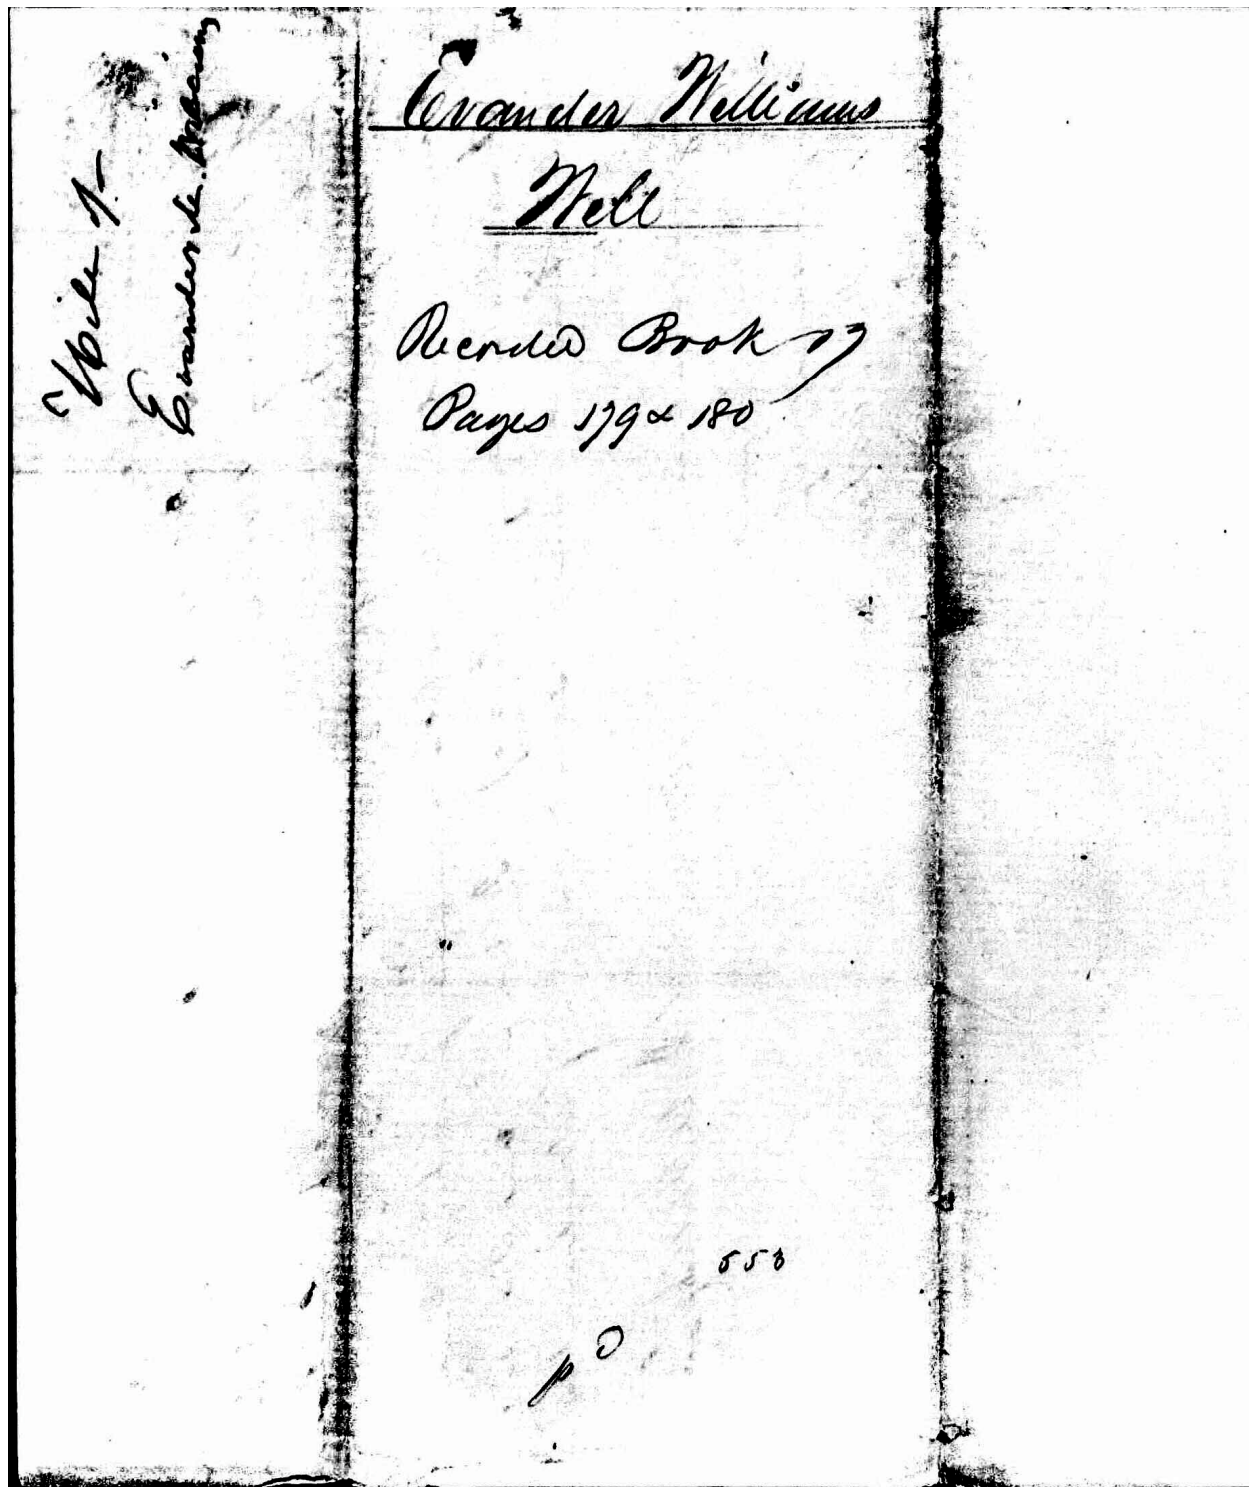 Will of
Evander Williams
Evander Williams
Will
Recorded Book
Pages 179 & 180
553
pd